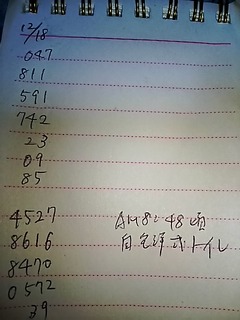 12/18
047
811
591
742
23
09
85
4527
8616
8470
0572
39
AM8:48頃
自宅洋式トイレ